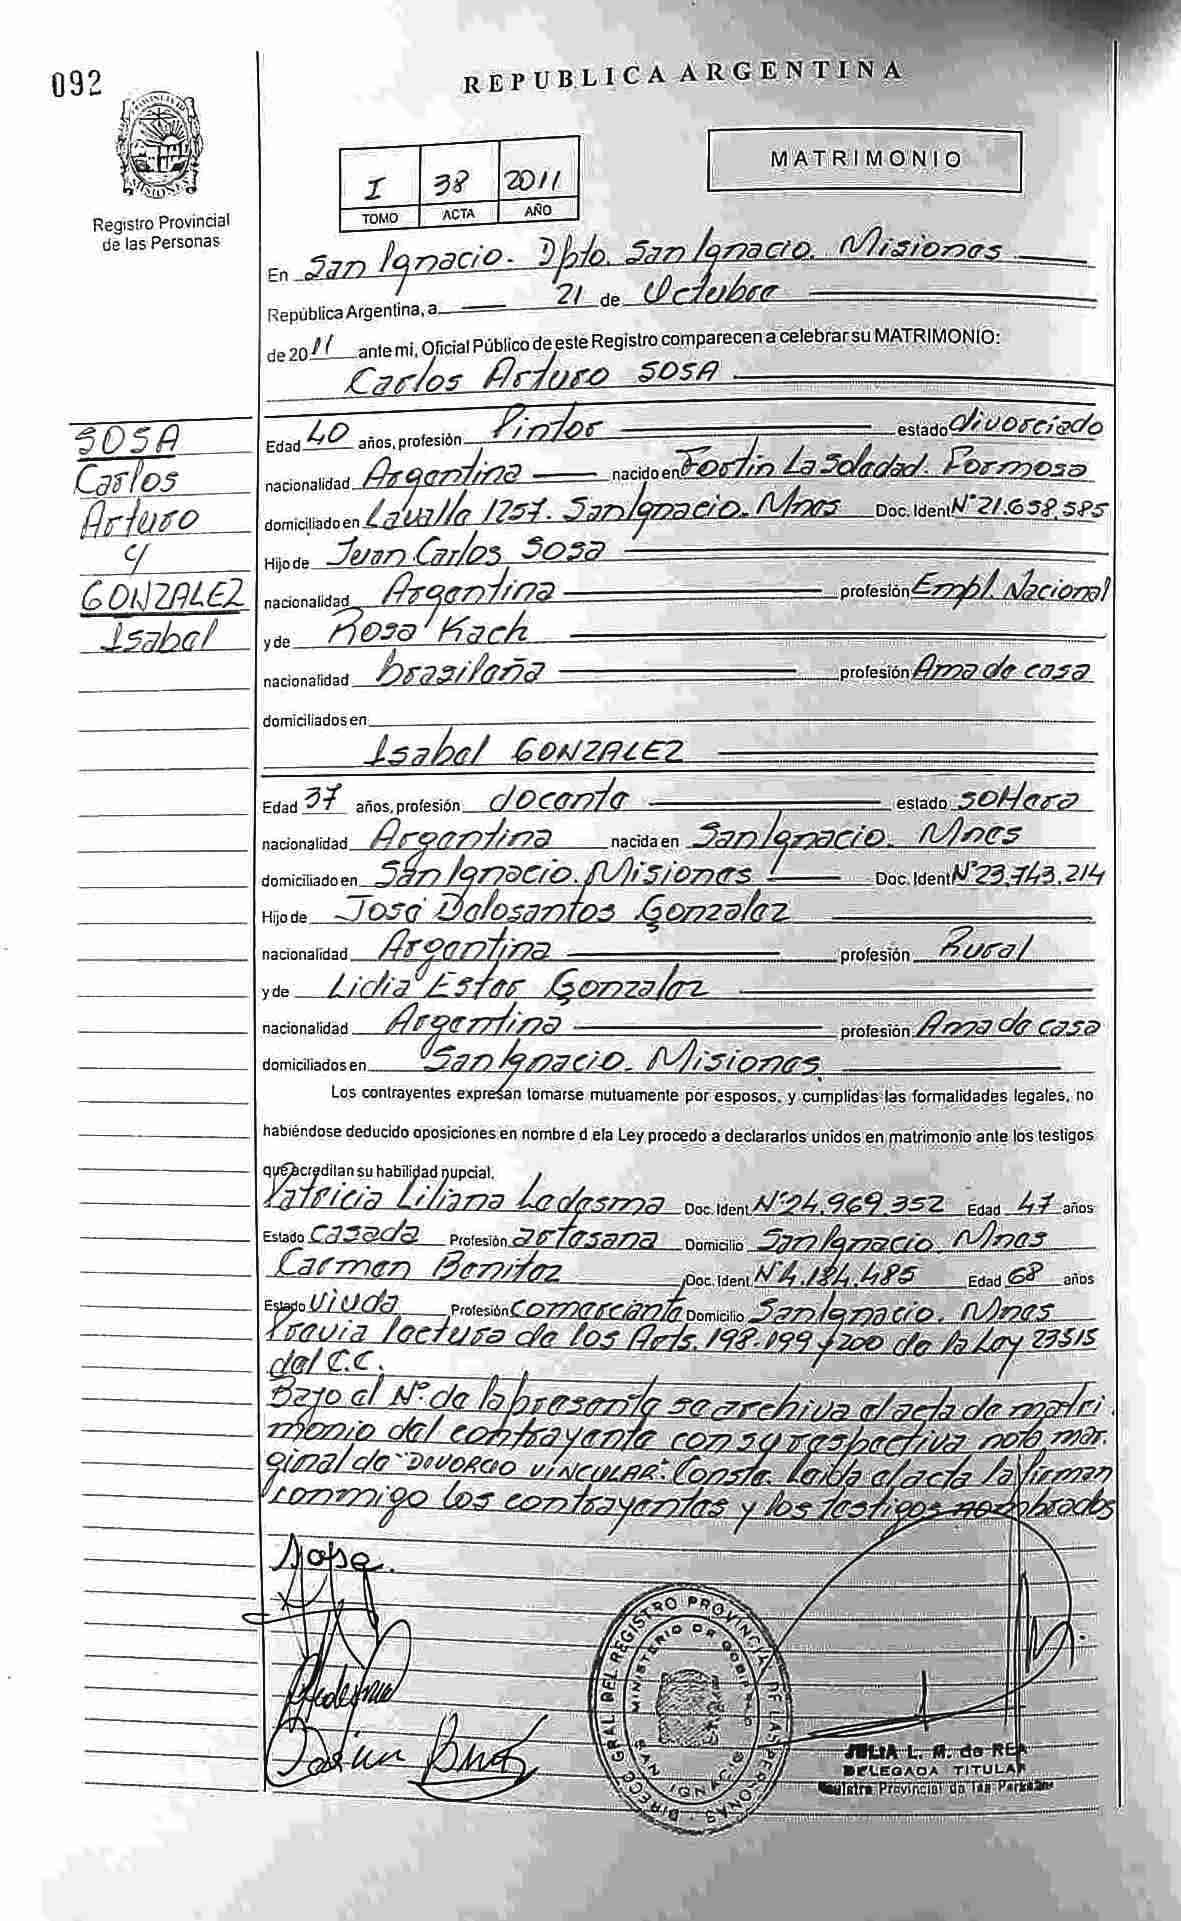 092
REPUBLICA ARGENTINA
PROVINCIA DE MISIONES
Registro Provincial
de las Personas
I 38 2011
TOMO ACTA AÑO
MATRIMONIO
En San Ignacio. Dpto. San Ignacio. Misiones
República Argentina, a 21 de Octubre
de 2011 ante mi, Oficial Público de este Registro comparecen a celebrar su MATRIMONIO:
Carlos Arturo SOSA
SOSA
Carlos
Arturo
y
GONZALEZ
Isabel
Edad 40 años, profesión Pintor estado divorciado
nacionalidad Argentina nacido en Fortin La Soledad. Formosa
domiciliado en Lavalle 1257. San Ignacio. Mnes Doc. Ident Nº 21.658.585
Hijo de Juan Carlos SOSA
nacionalidad Argentina profesión Empl. Nacional
y de Rosa Kach
nacionalidad brasileña profesión Ama de casa
domiciliados en
Isabel GONZALEZ
Edad 37 años, profesión docente estado soltera
nacionalidad Argentina nacida en San Ignacio. Mnes
domiciliado en San Ignacio. Misiones Doc. Ident Nº 23.743.214
Hijo de José Delosantos Gonzalez
nacionalidad Argentina profesión Rural
y de Lidia Ester Gonzalez
nacionalidad Argentina profesión Ama de casa
domiciliados en San Ignacio. Misiones.
Los contrayentes expresan tomarse mutuamente por esposos, y cumplidas las formalidades legales, no
habiéndose deducido oposiciones en nombre d ela Ley procedo a declararlos unidos en matrimonio ante los testigos
que acreditan su habilidad nupcial.
Patricia Liliana Ledesma Doc. Ident. Nº 24.969.352 Edad 47 años
Estado Casada Profesión artesana Domicilio San Ignacio. Mnes
Carmen Benitez Doc. Ident. Nº 4.184.485 Edad 68 años
Estado Viuda Profesión comerciante Domicilio San Ignacio. Mnes
Previa lectura de los Arts. 198-199 y 200 de la Ley 23515
del C.C.
Bajo el Nº. de la presente se archiva el acta de matri
monio del contrayente con su respectiva nota mar.
ginal de "DIVORCIO VINCULAR". Conste. Leida el acta la firman
conmigo los contrayentes y los testigos nombrados
Sosa.
Ledesma
Carmen Benitez
DIRECC. GRAL. DEL REGISTRO PROVINCIAL DE LAS PERSONAS
MINISTERIO DE GOBIERNO
SAN IGNACIO
JULIA L. M. de REA
DELEGADA TITULAR
Registro Provincial de las Personas